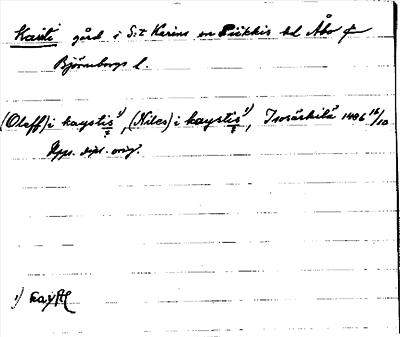 Kaisti gård i S:t Karins sn Piikkis hd Åbo o
Björneborgs l.
(Oleff) i kaystis 1), (Niles) i kaystis 1), Isoäskilä 1486 16/10
Upps. dipl. orig.
1) kayst